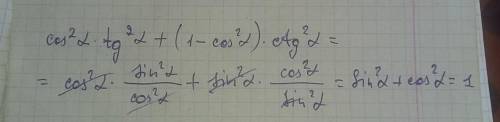 cos²α · tg²α + (1 - cos²α) · ctg²α =
= cos²α · sin²α/cos²α + sin²α · cos²α/sin²α = sin²α + cos²α = 1